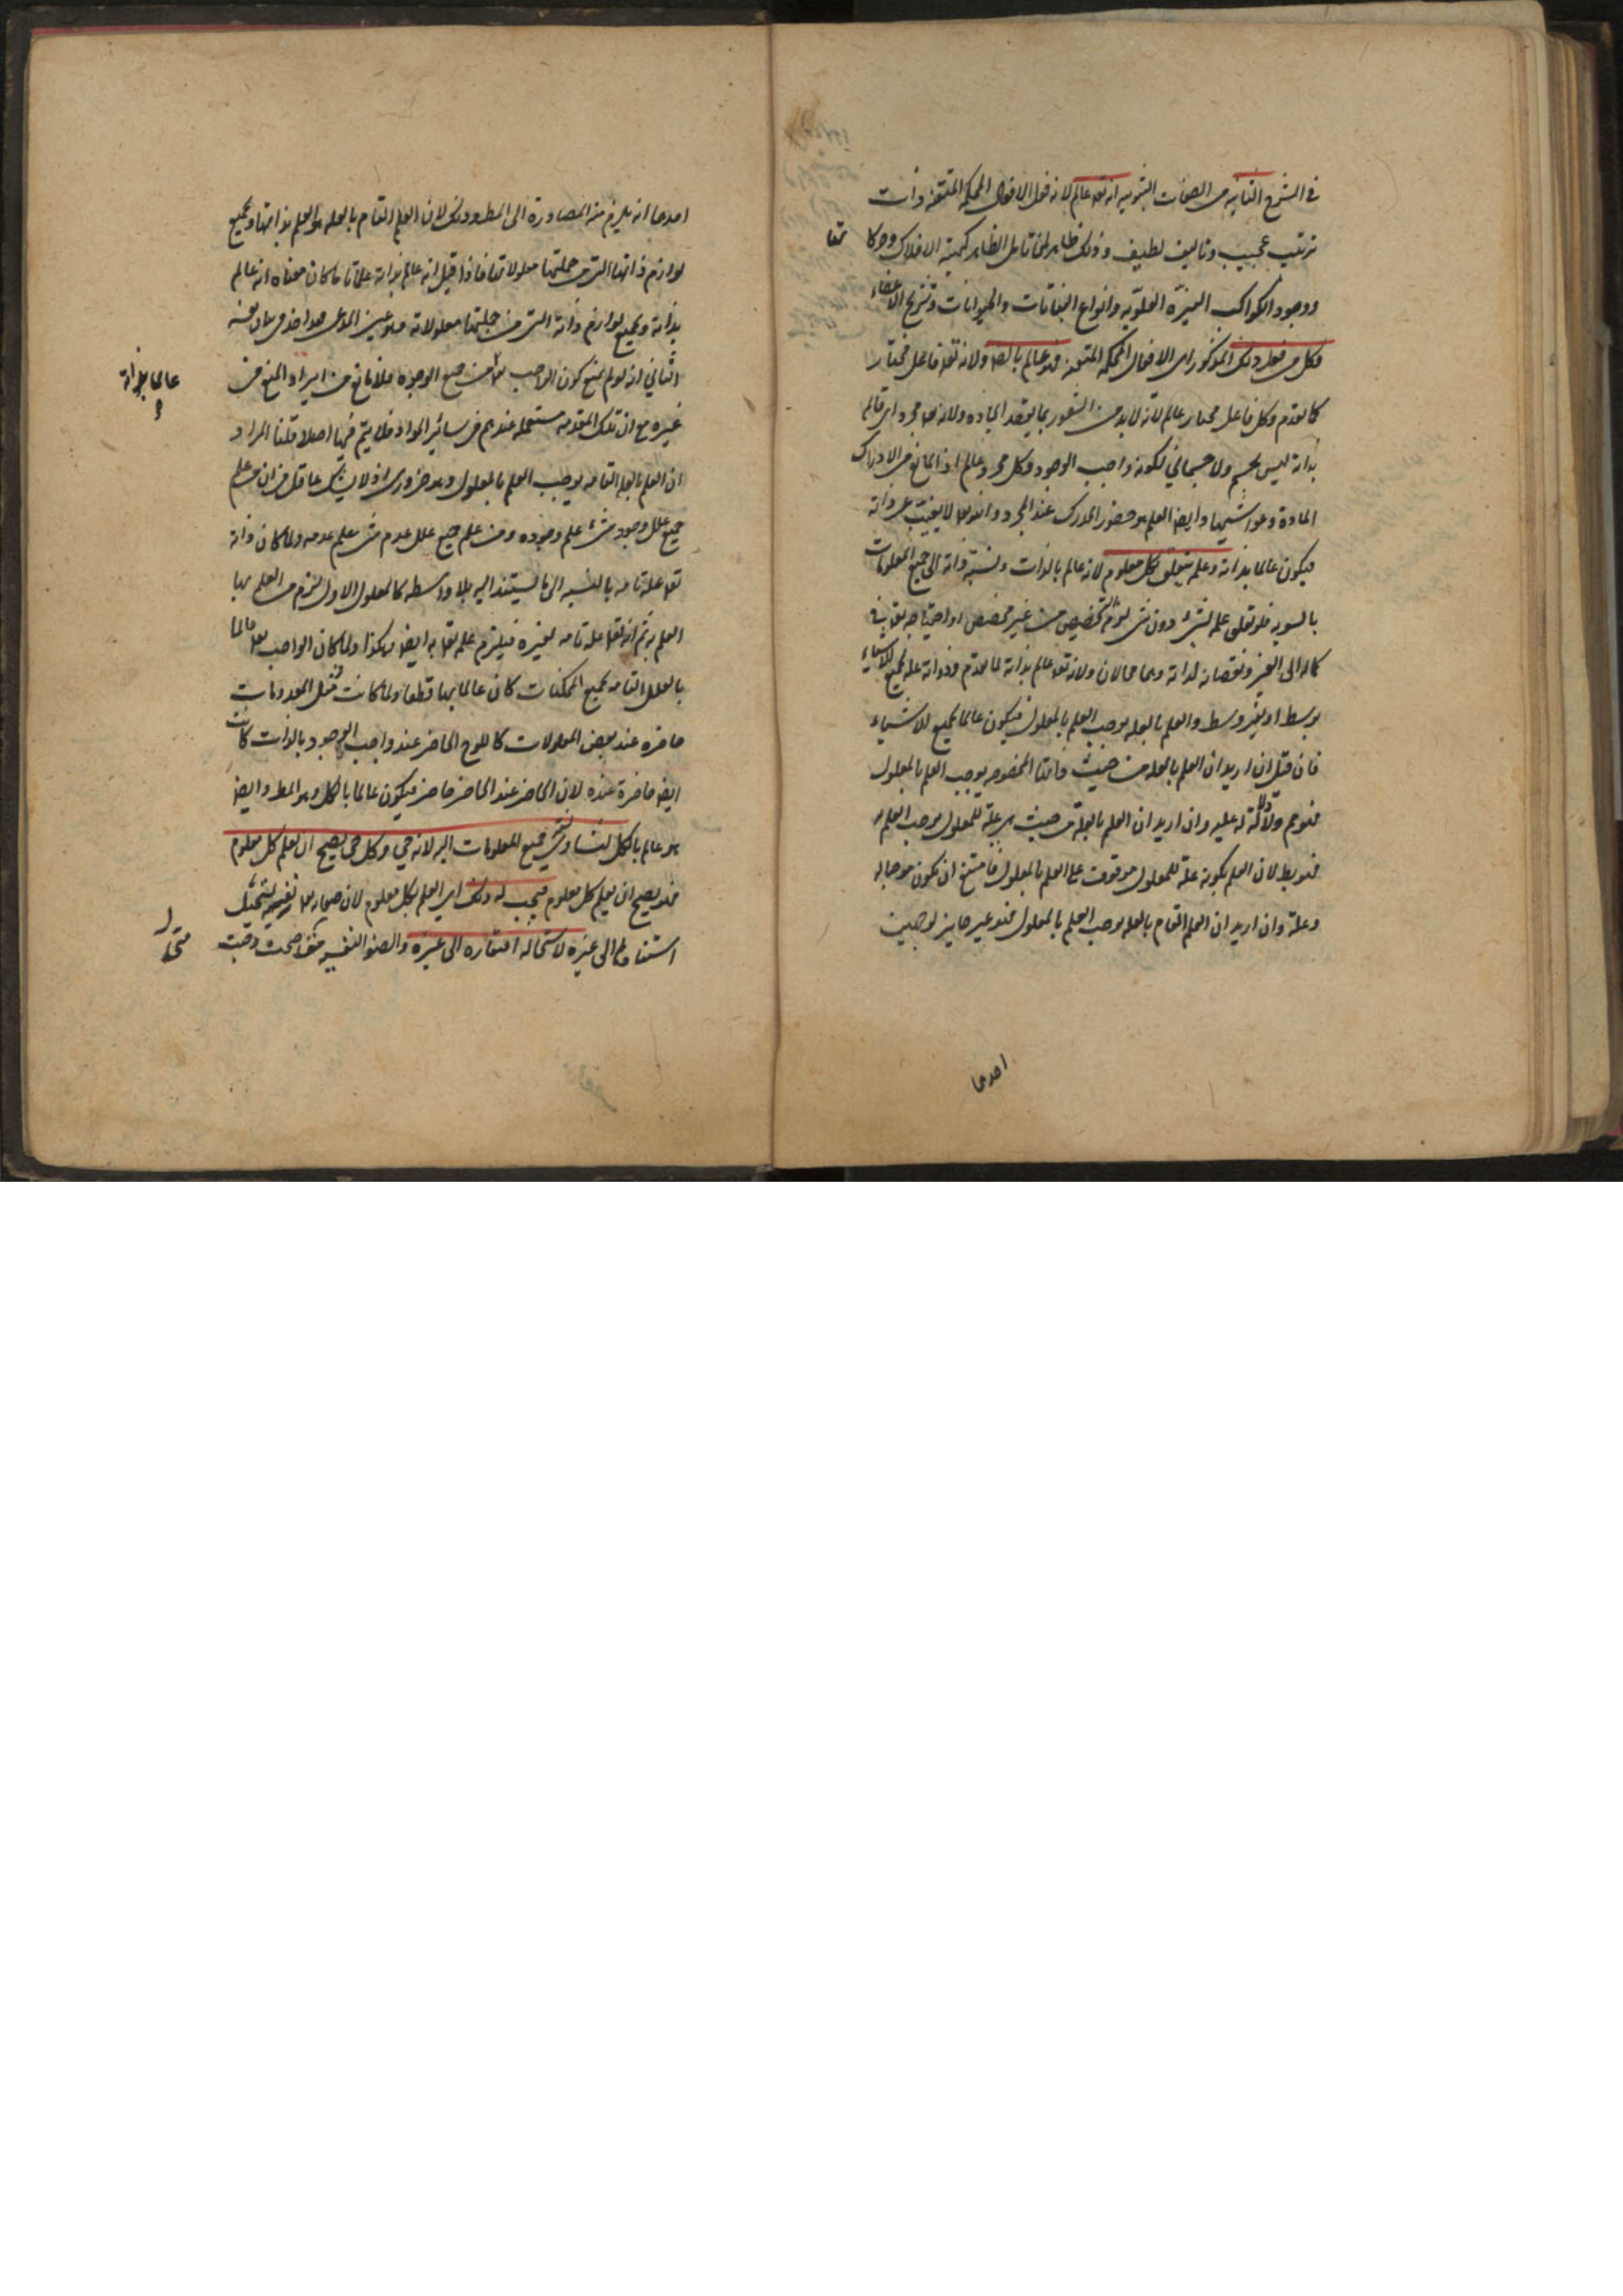 في الشرح الثانية من الصفات الثبوتية انه تعه عالم لانه فعل الافعال المحكمة المتقنة ذات
ترتيب عجيب وتاليف لطيف وذلك ظاهر لمن تامل الظاهر كهيئة الافلاك وحركا تها
ووجود الكواكب النيرة العلوية وانواع النباتات والحيوانات وتشريح الاعضاء
وكل من فعل ذلك المذكور اى الافعال المحكمة المتقنة فهو عالم بالضرورة ولانه تعه فاعل مختار
كما تقدم وكل فاعل مختار عالم لانه لابد من الشعور بما يقصد ايجاده ولانه تعه مجرد اى قائم
بذاته ليس بجسم ولا جسمانى لكونه واجب الوجود وكل مجرد عالم اذ المانع من الادراك
المادة وغواشيها وايضا العلم هو حضور المدرك عند المجرد وانه تعه لا يغيب عن ذاته
فيكون عالما بذاته وعلمه يتعلق بكل معلوم لانه عالم بالذات ونسبة ذاته الى جميع المعلومات
بالسوية فلو تعلق علمه بشئ دون شئ لزم التخصيص من غير مخصص او احتياجه تعه في
كماله الى الغير ونقصانه لذاته وهما محالان ولانه تعه عالم بذاته لما تقدم وذاته علة لجميع الاشياء
بوسط او بغير وسط والعلم بالعلة يوجب العلم بالمعلول فيكون عالما بجميع الاشياء
فان قيل ان اريد ان العلم بالعلة من حيث ذاتها المخصوصة يوجب العلم بالمعلول
فهو مم ولا دلالة له عليه وان اريد ان العلم بالعلة من حيث هى علة للمعلول يوجب العلم به
فهو بط لان العلم بكونه علة للمعلول موقوف على العلم بالمعلول فامتنع ان يكون موجبا له
وعلة وان اريد ان العلم التام بالعلة يوجب العلم بالمعلول فهو غير جايز لوجهين
احدهما
احدهما انه يلزم منه المصادرة الى المط وذلك لان العلم التام بالعلة هو العلم بذاتها وبجميع
لوازم ذاتها التى من جملتها معلولاتها فاذا قيل انه عالم بذاته علما تاما كان معناه انه عالم
بذاته وبجميع لوازم ذاته التى من جملتها معلولاته وهو عين المدعى
الثانى انه لو لم يمنع كون الواجب من جميع الوجوه فلا مانع من ايراد المنع فى عالما بذاته
غيره مع ان تلك المقدمة مستعملة عندهم فى سائر المواد فلا يتم فيها اصلا قلنا المراد
ان العلم بالعلة التامة يوجب العلم بالمعلول وهو ضرورى اذ لا يشك عاقل فى ان من علم
جميع علل وجود شئ علم وجوده ومن علم جميع علل عدم شئ يعلم عدمه ولما كان ذاته
تعه علة تامة بالنسبة الى ما يستند اليه بلا واسطة كالمعلول الاول لزم من العلم بها
العلم به ثم انه تعه علة تامة لغيره فيلزم علمه تعه به ايضا وهكذا ولما كان الواجب تعه عالما
بالعلل التامة بجميع الممكنات كان عالما بها قطعا ولما كانت مثل المعدومات
حاضرة عند بعض المعلولات كاللوح الحاضر عند واجب الوجود بالذات كانت
ايضا حاضرة عنده لان الحاضر عند الحاضر حاضر فيكون عالما بالكل وهو المط وايضا
هو عالم بالكل لتساوى نسبة جميع المعلومات اليه لانه حي وكل حى يصح ان يعلم كل معلوم
فهو يصح ان يعلم كل معلوم فيجب له ذلك اى العلم بكل معلوم لان صفاته تعه نفسية يستحيل
استنادها الى غيره لاستحالة افتقاره الى غيره والصفة النفسية متى صحت وجبت